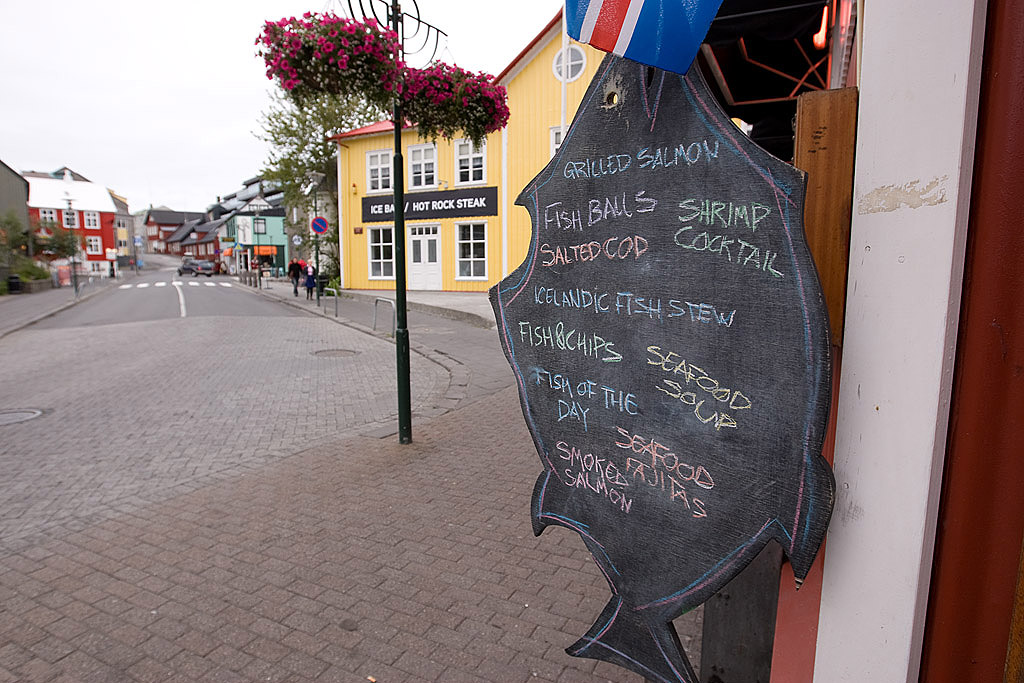 ICE BAR / HOT ROCK STEAK
GRILLED SALMON
FISH BALLS
SALTED COD
SHRIMP
COCKTAIL
ICELANDIC FISH STEW
FISH & CHIPS
SEAFOOD
SOUP
FISH OF THE
DAY
SEAFOOD
FAJITAS
SMOKED
SALMON